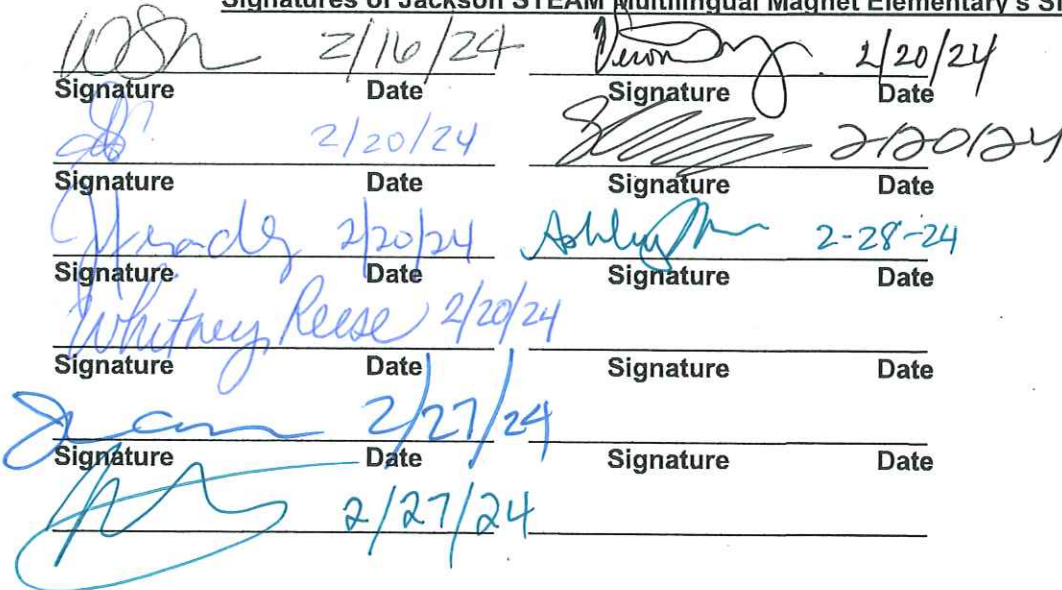 Signatures of Jackson STEAM Multilingual Magnet Elementary's
2/16/24 2/20/24
Signature Date Signature Date
2/20/24 2/20/24
Signature Date Signature Date
2/20/24 Ashley 2-28-24
Signature Date Signature Date
Whitney Reese 2/20/24
Signature Date Signature Date
2/27/24
Signature Date Signature Date
2/27/24